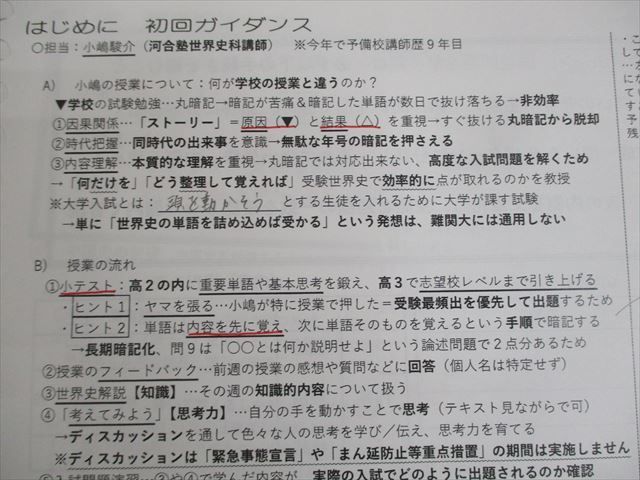 はじめに　初回ガイダンス
〇担当：小嶋駿介（河合塾世界史科講師）　※今年で予備校講師歴９年目
A)　小嶋の授業について：何が学校の授業と違うのか？
▼学校の試験勉強…丸暗記→暗記が苦痛＆暗記した単語が数日で抜け落ちる→非効率
①因果関係…「ストーリー」＝原因（▼）と結果（△）を重視→すぐ抜ける丸暗記から脱却
②時代把握…同時代の出来事を意識→無駄な年号の暗記を押さえる
③内容理解…本質的な理解を重視→丸暗記では対応出来ない、高度な入試問題を解くため
→「何だけを」「どう整理して覚えれば」受験世界史で効率的に点が取れるのかを教授
※大学入試とは：頭を動かそうとする生徒を入れるために大学が課す試験
→単に「世界史の単語を詰め込めば受かる」という発想は、難関大には通用しない
B)　授業の流れ
①小テスト：高２の内に重要単語や基本思考を鍛え、高３で志望校レベルまで引き上げる
・ヒント１：ヤマを張る…小嶋が特に授業で押した＝受験最頻出を優先して出題するため
・ヒント２：単語は内容を先に覚え、次に単語そのものを覚えるという手順で暗記する
→長期暗記化、問９は「〇〇とは何か説明せよ」という論述問題で２点分あるため
②授業のフィードバック…前週の授業の感想や質問などに回答（個人名は特定せず）
③世界史解説【知識】…その週の知識的内容について扱う
④「考えてみよう」【思考力】…自分の手を動かすことで思考（テキスト見ながらで可）
→ディスカッションを通して色々な人の思考を学び／伝え、思考力を育てる
※ディスカッションは「緊急事態宣言」や「まん延防止等重点措置」の期間は実施しません
⑤入試問題演習…③や④で学んだ内容が、実際の入試でどのように出題されるのか確認